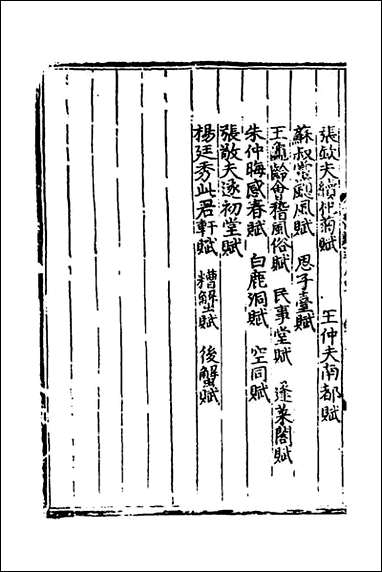 張敏夫續杞菊賦　王仲夫南都賦
蘇叔黨颶風賦　思子臺賦
王龜齡會稽風俗賦　民事堂賦　蓬萊閣賦
朱仲晦感春賦　白鹿洞賦　空同賦
張敬夫遂初堂賦
楊廷秀此君軒賦　糟蟹賦　後蟹賦